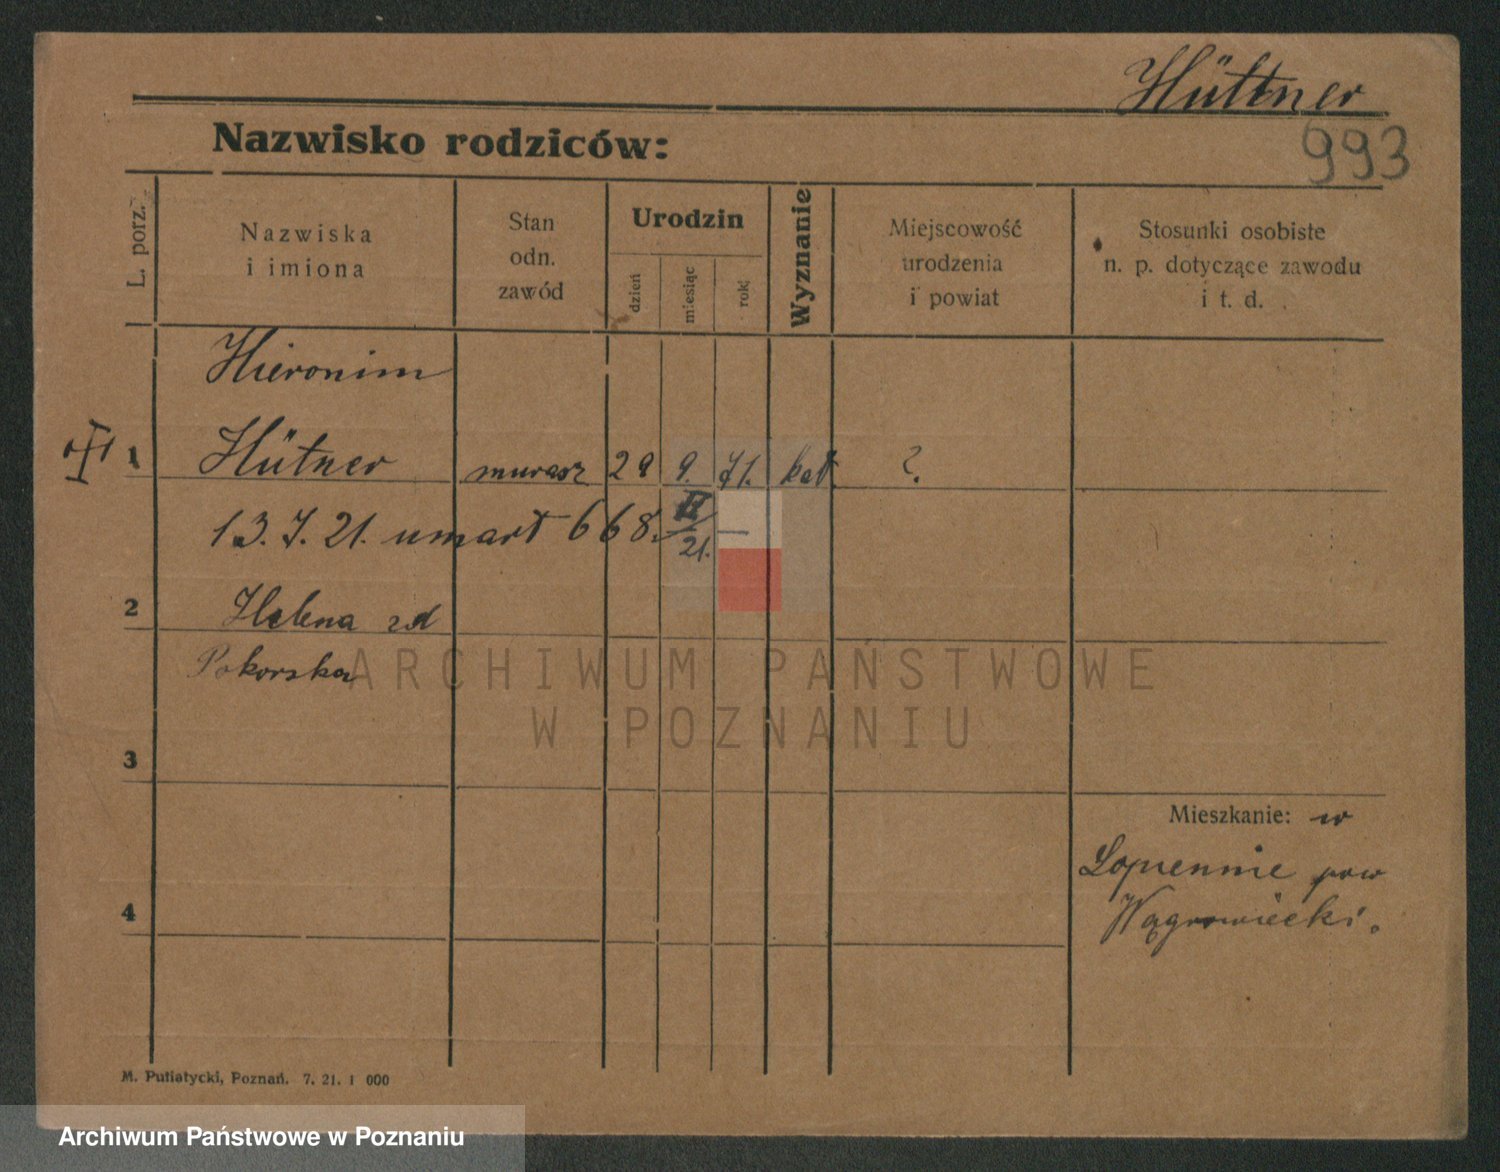 Hüttner
Nazwisko rodziców:
993
L. porz.
Nazwiska
i imiona
Stan
odn.
zawód
Urodzin
dzień
miesiąc
rok
Wyznanie
Miejscowość
urodzenia
i powiat
Stosunki osobiste
n. p. dotyczące zawodu
i t. d.
Hieronim
1 Hütner murarz 29 9. 71. kat ?
13. 7. 21. umart 668. II/21. —
2 Helena zd
Pokorska
ARCHIWUM PAŃSTWOWE
W POZNANIU
3
Mieszkanie: w
Łopiennie pow
Wągrowiecki.
4
M. Putiatycki, Poznań. 7. 21. 1 000
Archiwum Państwowe w Poznaniu